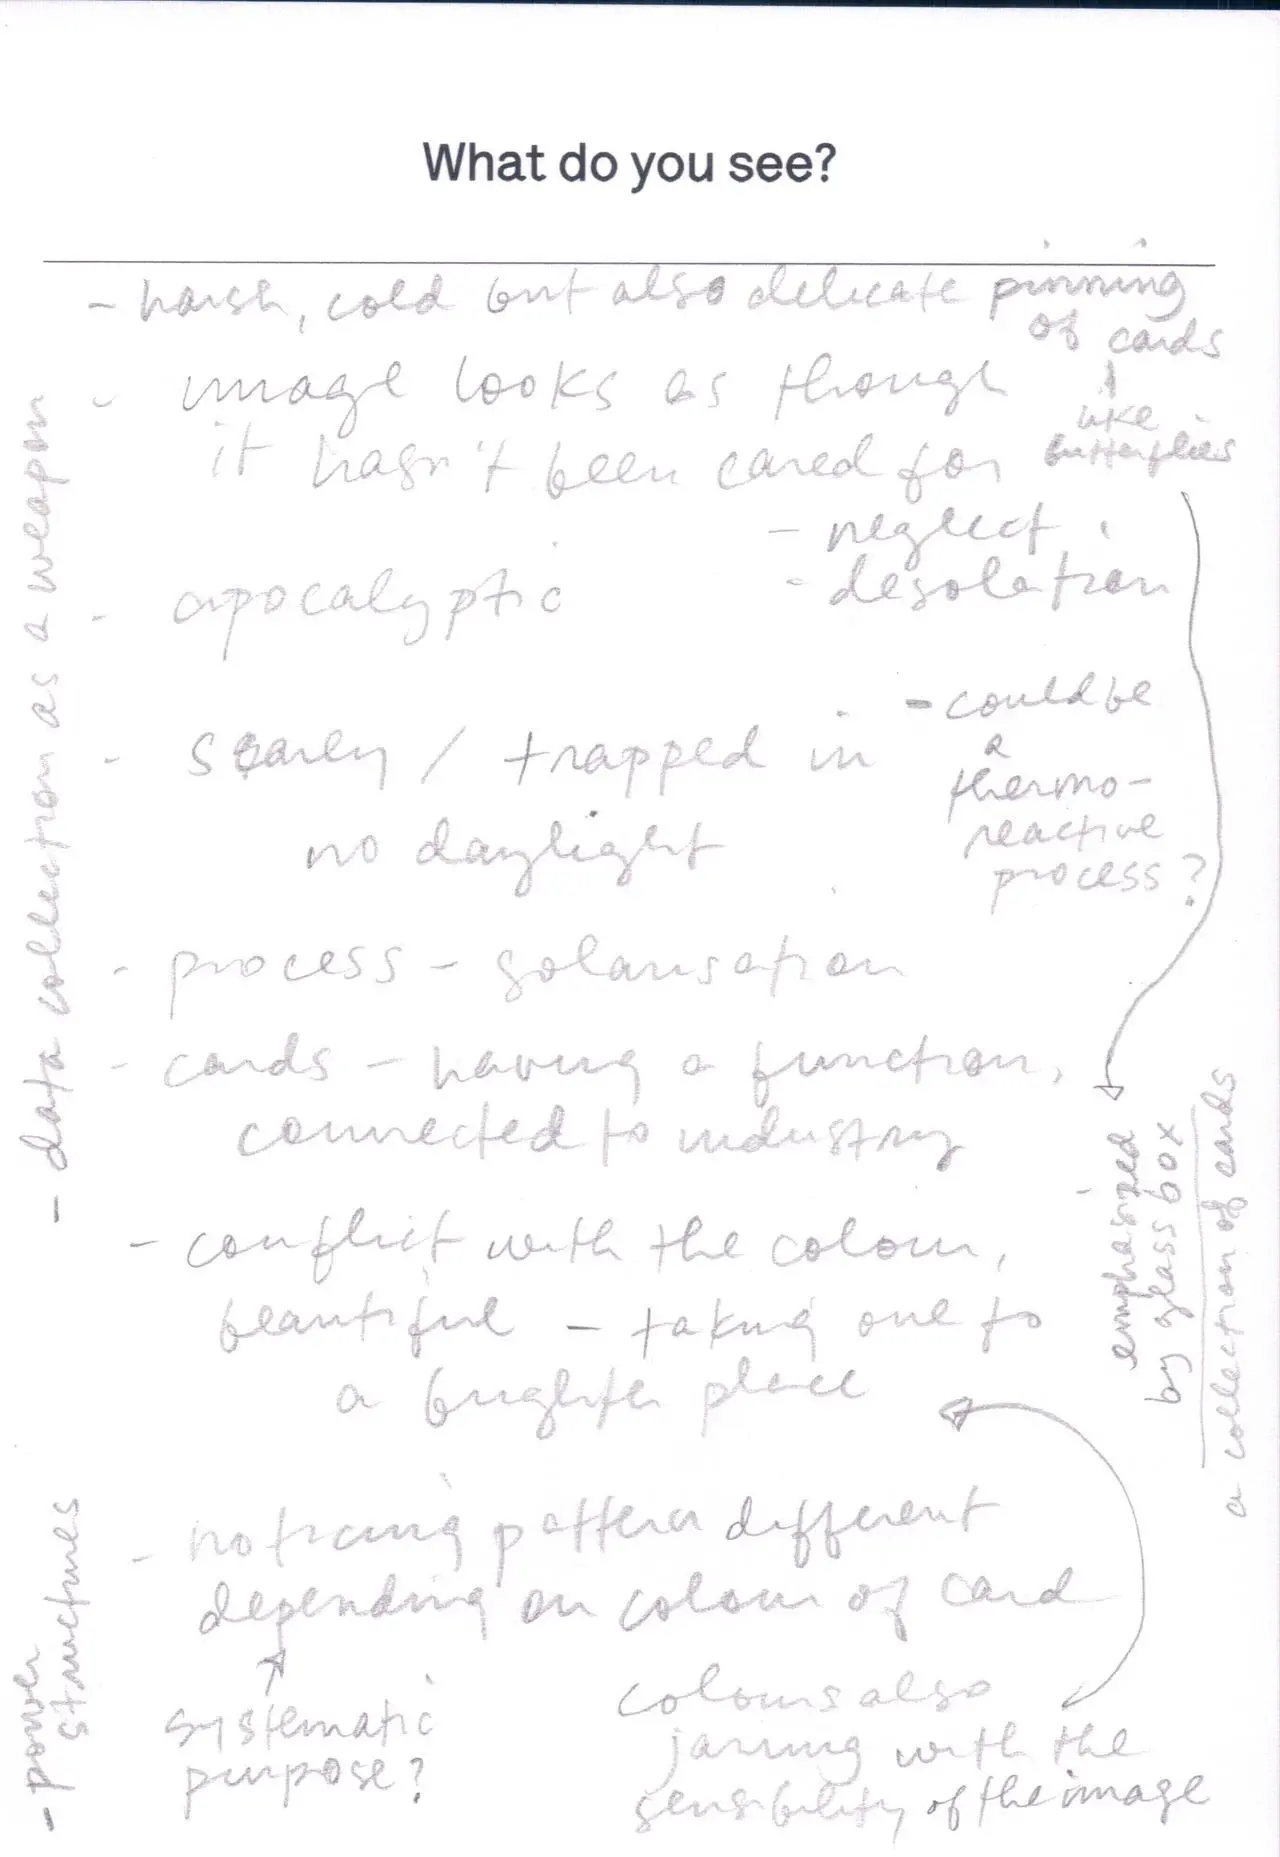 What do you see?
- harsh, cold but also delicate pinning
of cards
like
butterflies
- image looks as though
it hasn't been cared for
- neglect
- desolation
- apocalyptic
- scarey / trapped in
no daylight
- could be
a
thermo-
reactive
process?
- process - solarisation
- cards - having a function,
connected to industry
- conflict with the colour,
beautiful - taking one to
a brighter place
- noticing pattern different
depending on colour of card
systematic
purpose?
colours also
jarring with the
sensibility of the image
- data collection as a weapon
- power
structures
emphasized
by glass box
a collection of cards